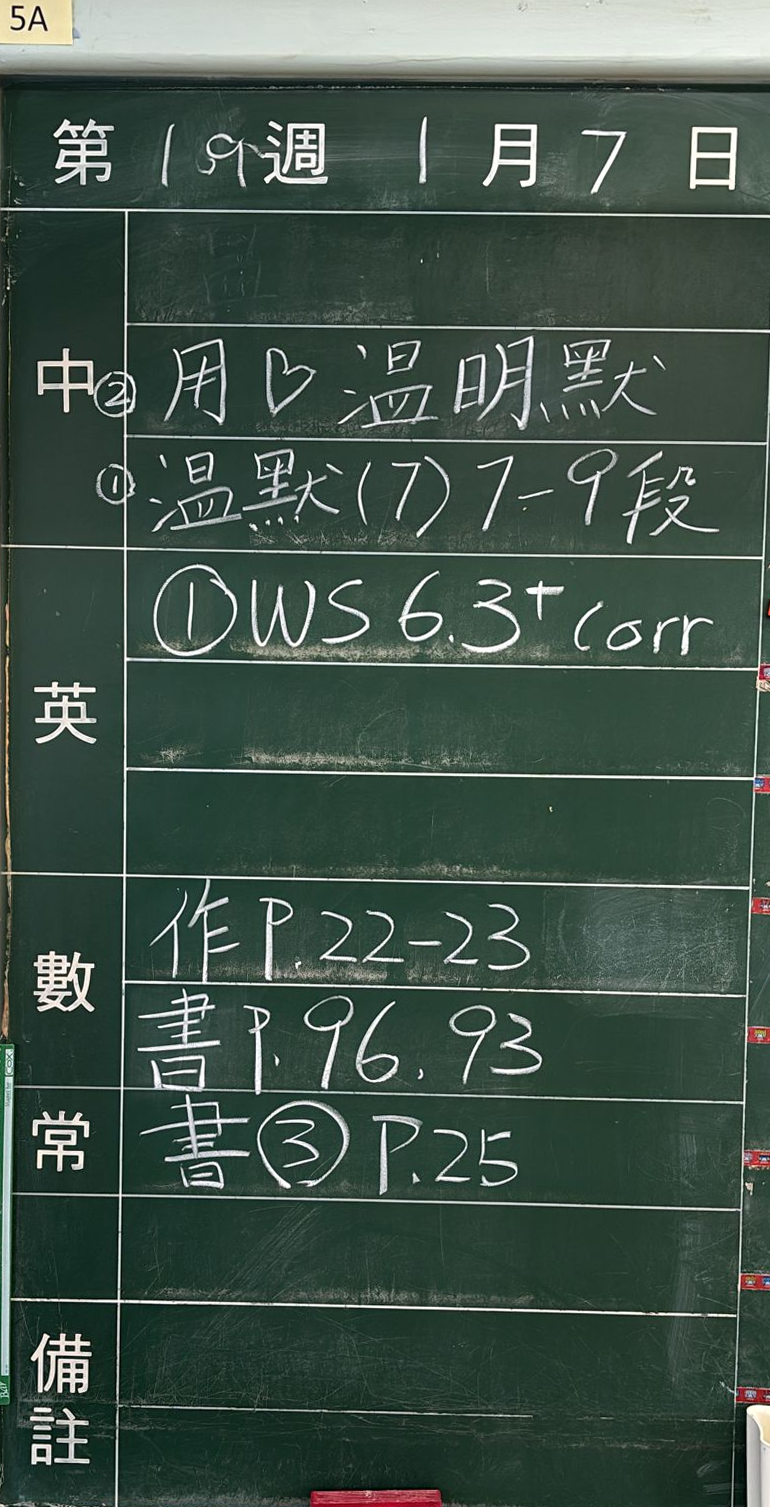 5A
第19週 1月7日
中② 用♡温明默
①温默(7)7-9段
英
①WS 6.3+corr
數
作P.22-23
書P.96,93
常 書③P.25
備註